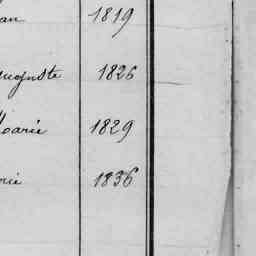 an 1819
uguste 1826
Marie 1829
rie 1836